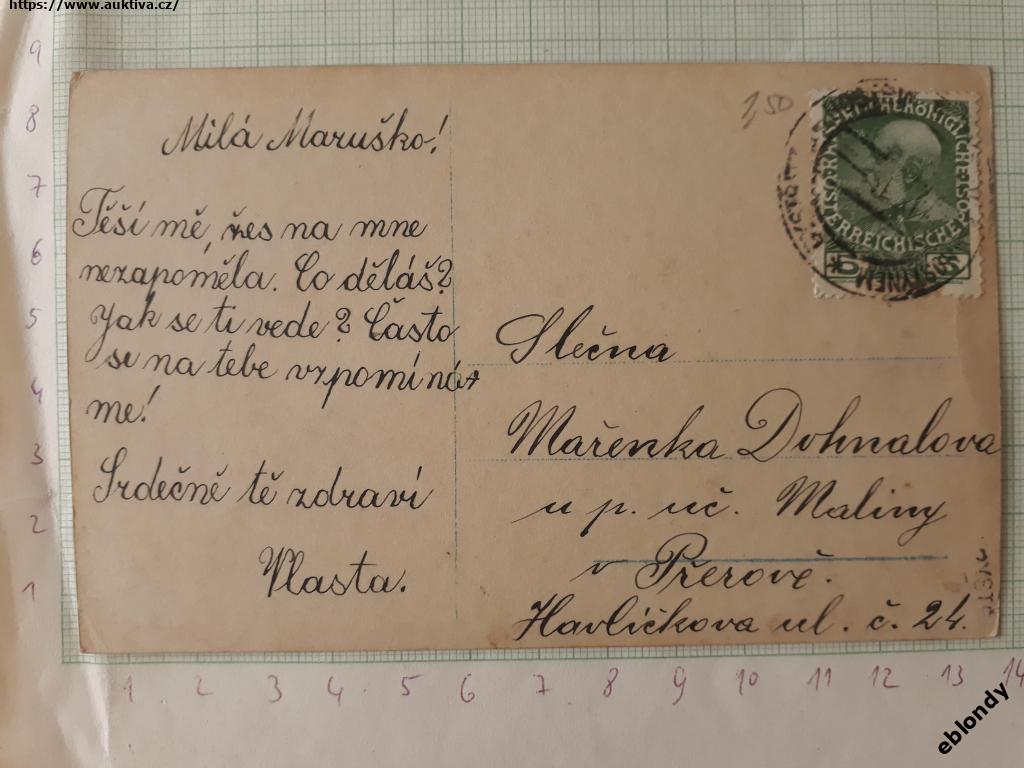 https://www.auktiva.cz/
9
8
7
6
5
4
3
2
1
Milá Maruško!
Těší mě, žes na mne
nezapoměla. Co děláš?
Jak se ti vede? Často
si na tebe vzpomíná-
me!
Srdečně tě zdraví
Vlasta.
1,50
5
Slečna
Mařenka Dohnalova
u p. uč. Maliny
v Přerově.
Havlíčkova ul. č. 24.
1 2 3 4 5 6 7 8 9 10 11 12 13 14
eblondy